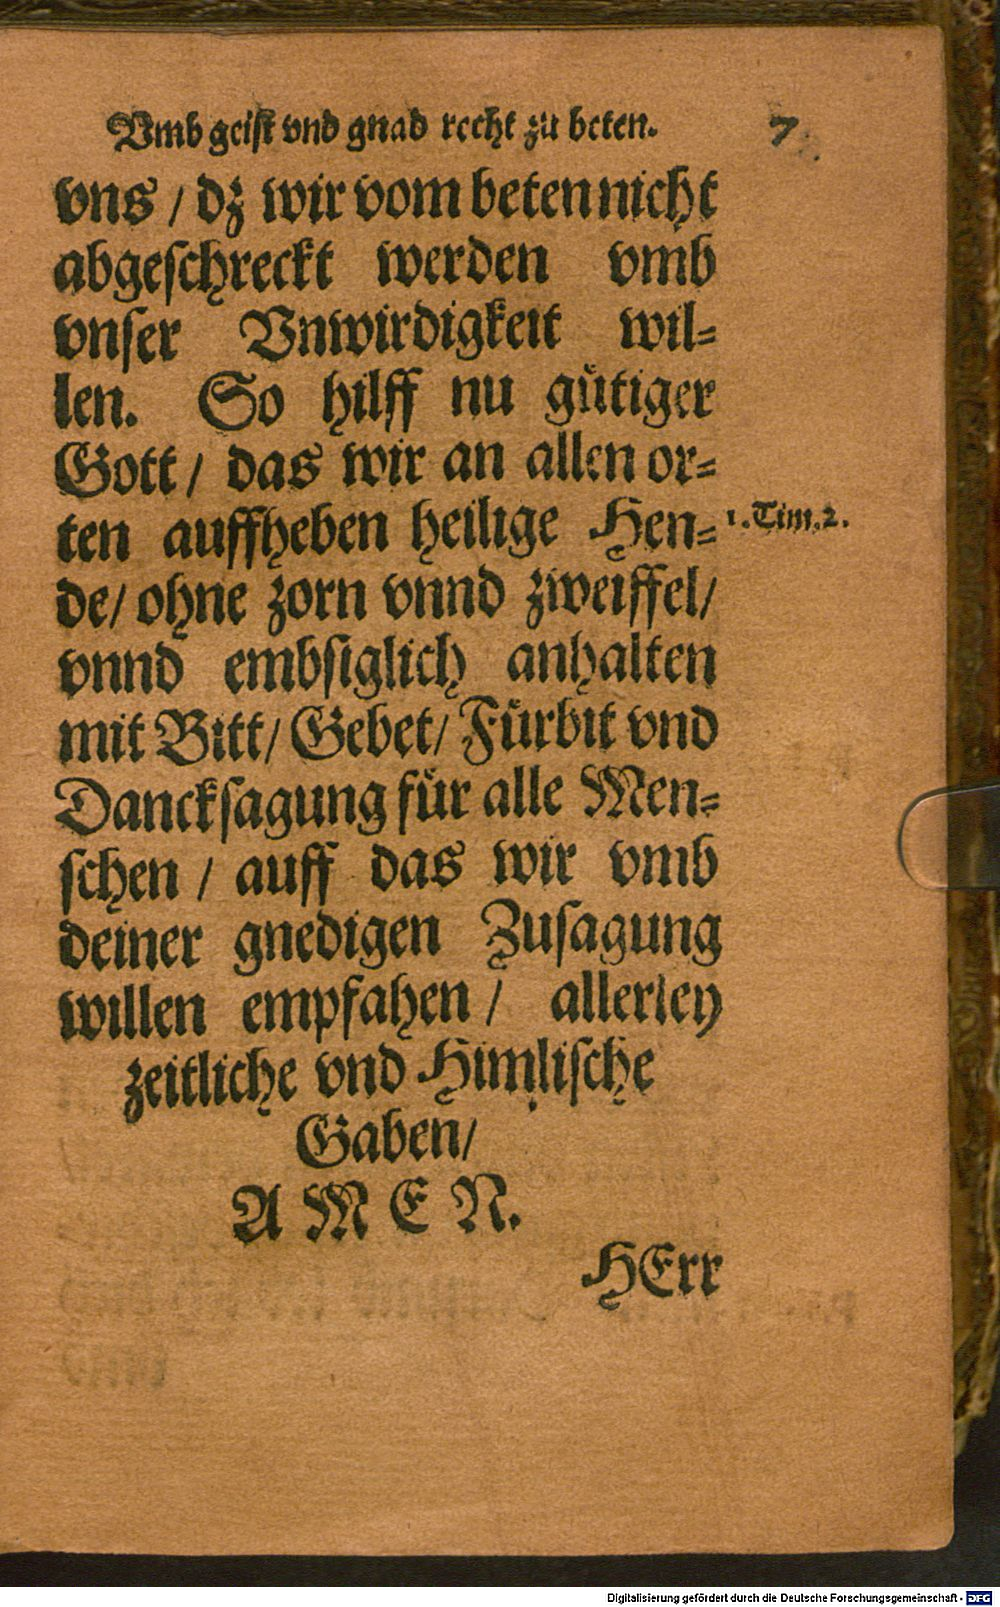 Vmb geist vnd gnad recht zu beten. 7
vns / dz wir vom beten nicht
abgeschreckt werden vmb
vnser Vnwirdigkeit wil-
len. So hilff nu gütiger
Gott / das wir an allen or-
ten auffheben heilige Hen-
1. Tim. 2.
de / ohne zorn vnnd zweiffel /
vnnd embsiglich anhalten
mit Bitt / Gebet / Fürbit vnd
Dancksagung für alle Men-
schen / auff das wir vmb
deiner gnedigen Zusagung
willen empfahen / allerley
zeitliche vnd Himlische
Gaben /
A M E N.
HErr
Digitalisierung gefördert durch die Deutsche Forschungsgemeinschaft - DFG